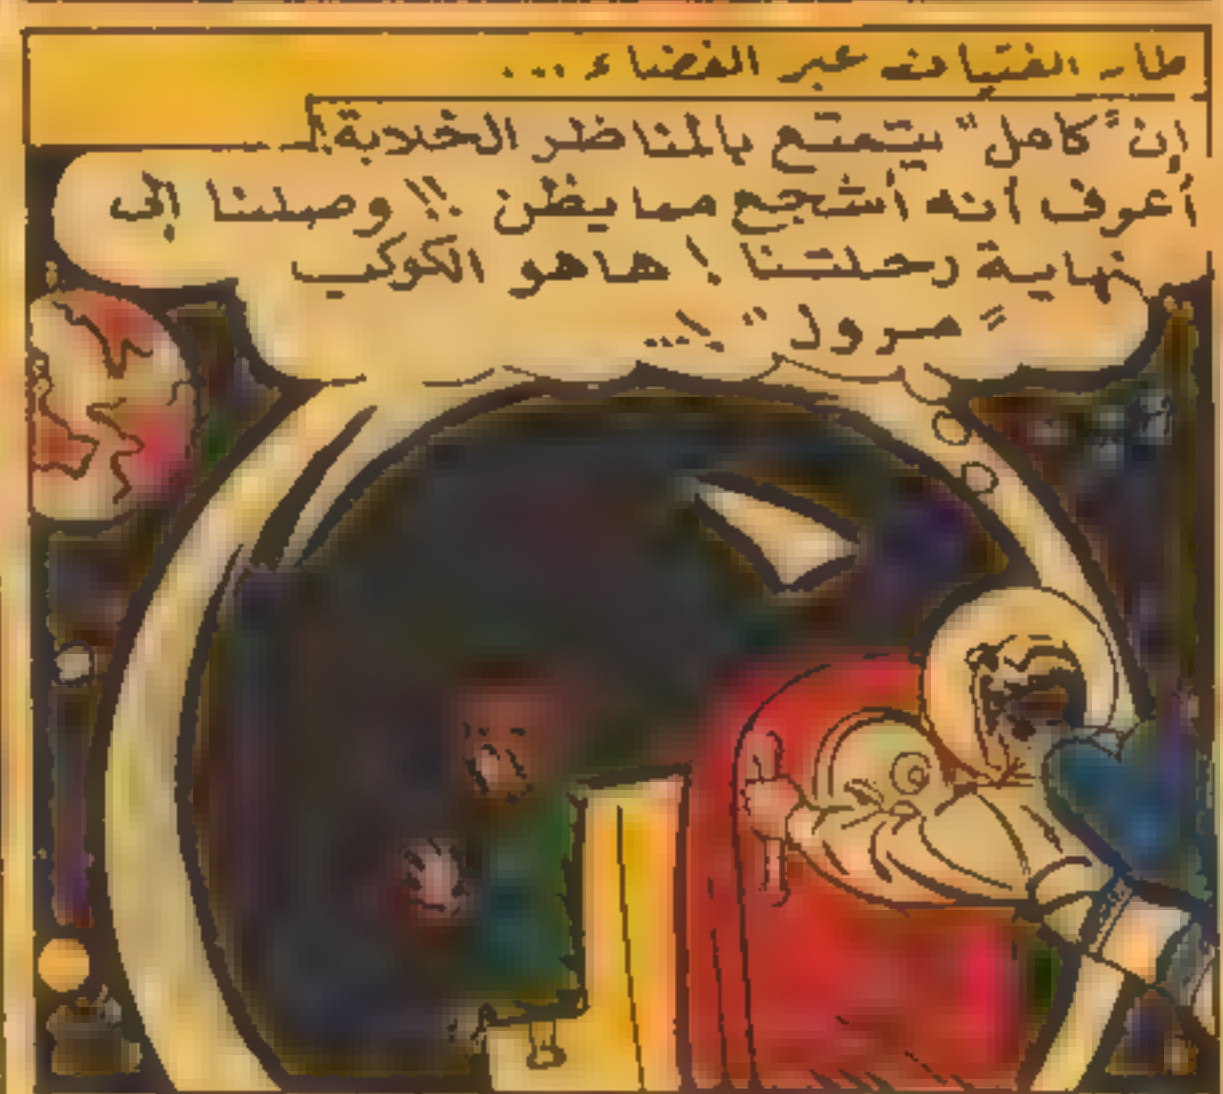 طار الفتيان عبر الفضاء ...
إن "كامل" يتمتع بالمناظر الخلابة!
أعرف أنه أشجع مما يظن !! وصلنا إلى
نهاية رحلتنا ! ها هو الكوكب
"مرول" !...